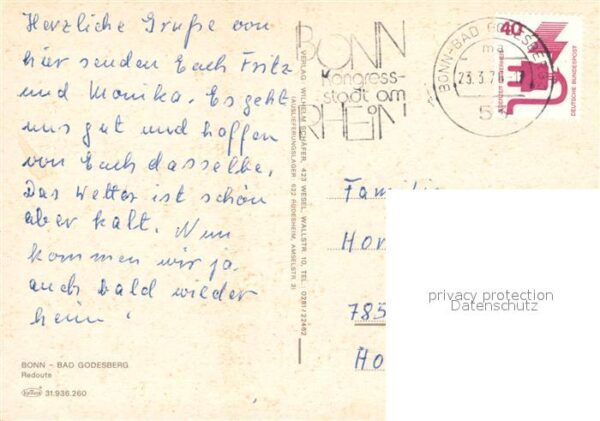 Herzliche Grüße von
hier senden Euch Fritz
und Monika. Es geht
uns gut und hoffen
von Euch dasselbe.
Das Wetter ist schön
aber kalt. Nun
kommen wir ja
auch bald wieder
heim!
BONN - BAD GODESBERG
Redoute
31.936.260
VERLAG WILHELM SCHÄFER, 423 WESEL, WALLSTR. 10, TEL. 0281/22462
(AUSLIEFERUNGSLAGER 622 RÜDESHEIM, AMSELSTR. 3)
BONN
Kongress-
stadt am
RHEIN
BONN-BAD GODESBERG
ma
23.3.76
53
40
DEUTSCHE BUNDESPOST
Familie
Hor
785
Ho
privacy protection
Datenschutz